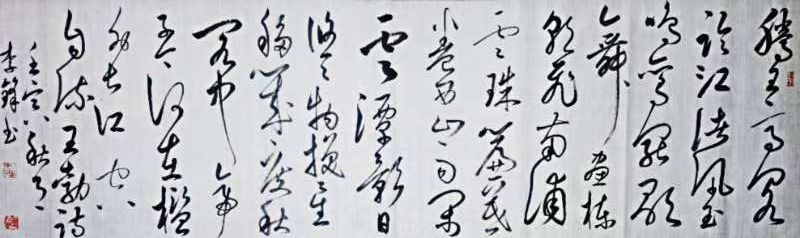 滕王高阁
临江渚佩玉
鸣鸾罢歌
舞画栋
朝飞南浦
云珠帘暮
卷西山雨闲
云潭影日
悠悠物换星
移几度秋
阁中帝
子今何在槛
外长江空
自流王勃诗
壬寅秋月
李锋书